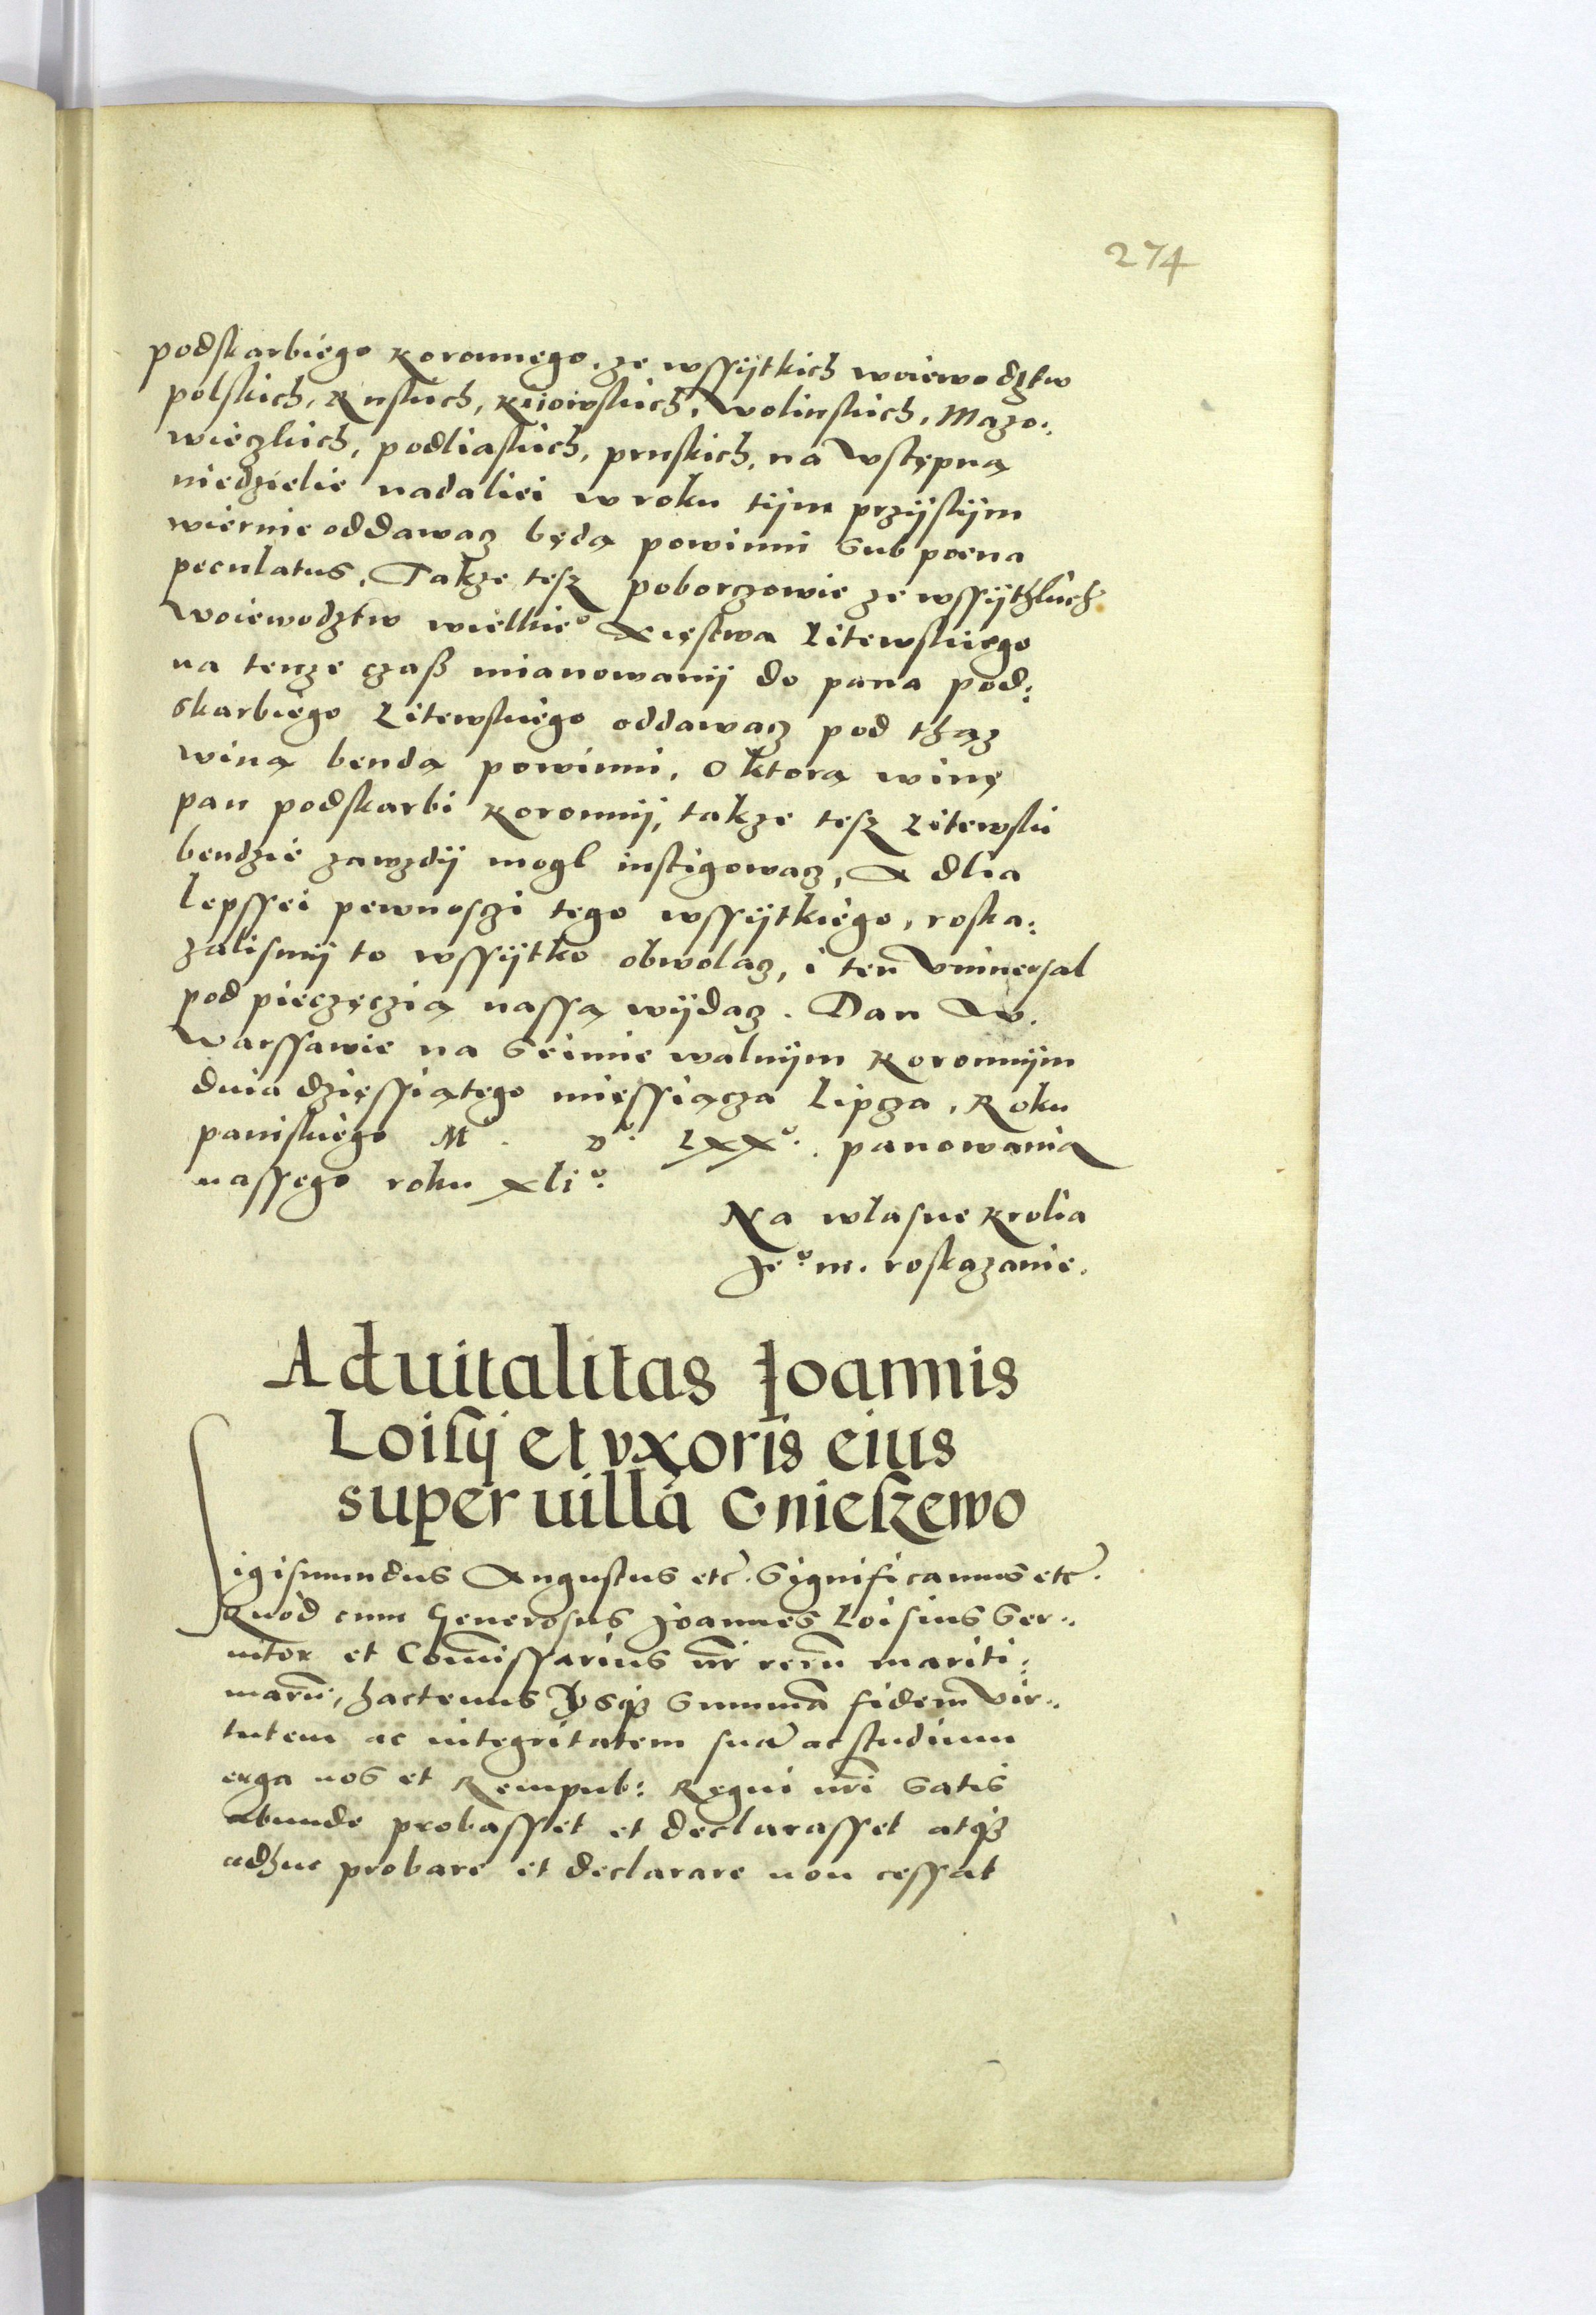 274
podskarbiego koronnego, ze wssÿtkich woiewodztw
polskich, Ruskich, Kijowskich, Wolinskich, Mazo:
wieczkich, podliaskich, pruskich, na Wstępną
niedzielie nadaliei w roku tÿm przÿskÿm
wiernie oddawacz będą powinni sub poena
peculatus. Takze tesz poborczowie ze wssÿthkich
Woiewodztw wielkieº Xięstwa Litewskiego
na tenze czaß mianowanÿ do pana pod:
skarbiego Litewskiego oddawacz pod thąz
winą bendą powinni. O ktorą winę
pan podskarbi koronnÿ, takze tesz Litewski
bendzie zawzdÿ mogl instigowacz, A dlia
lepssei pewnosczi tego wssÿtkiego, roska:
zalismÿ to wssÿtko obwolacz, i ten Vniuersal
pod pieczęczią nassą wÿdacz. Dan w.
Warssawie na Seimie walnÿm koronnÿm
dnia dziessiątego miessiącza Lipcza, Roku
paniskiego Mº. Dº. LXXº. panowania
nassego roku xliº.
Na wlasne krolia
Jeº m. roskazanie.
Aduitalitas Joannis
Loisÿ et vxoris eius
super uillā Gnieszewo
Sigismundus Augustus etc̄. Significamus etc̄.
Quod cum Generosus Joannes Loisius Ser:
uitor et Com̄issarius nr̄ rerū mariti:
marū, hactenus Vsq3 summā fidem Vir:
tutem ac integritatem suā ac studium
erga nos et Rempub: Regni nr̄i satis
abunde probasset et declarasset atq3
adhuc probare et declarare non cessat